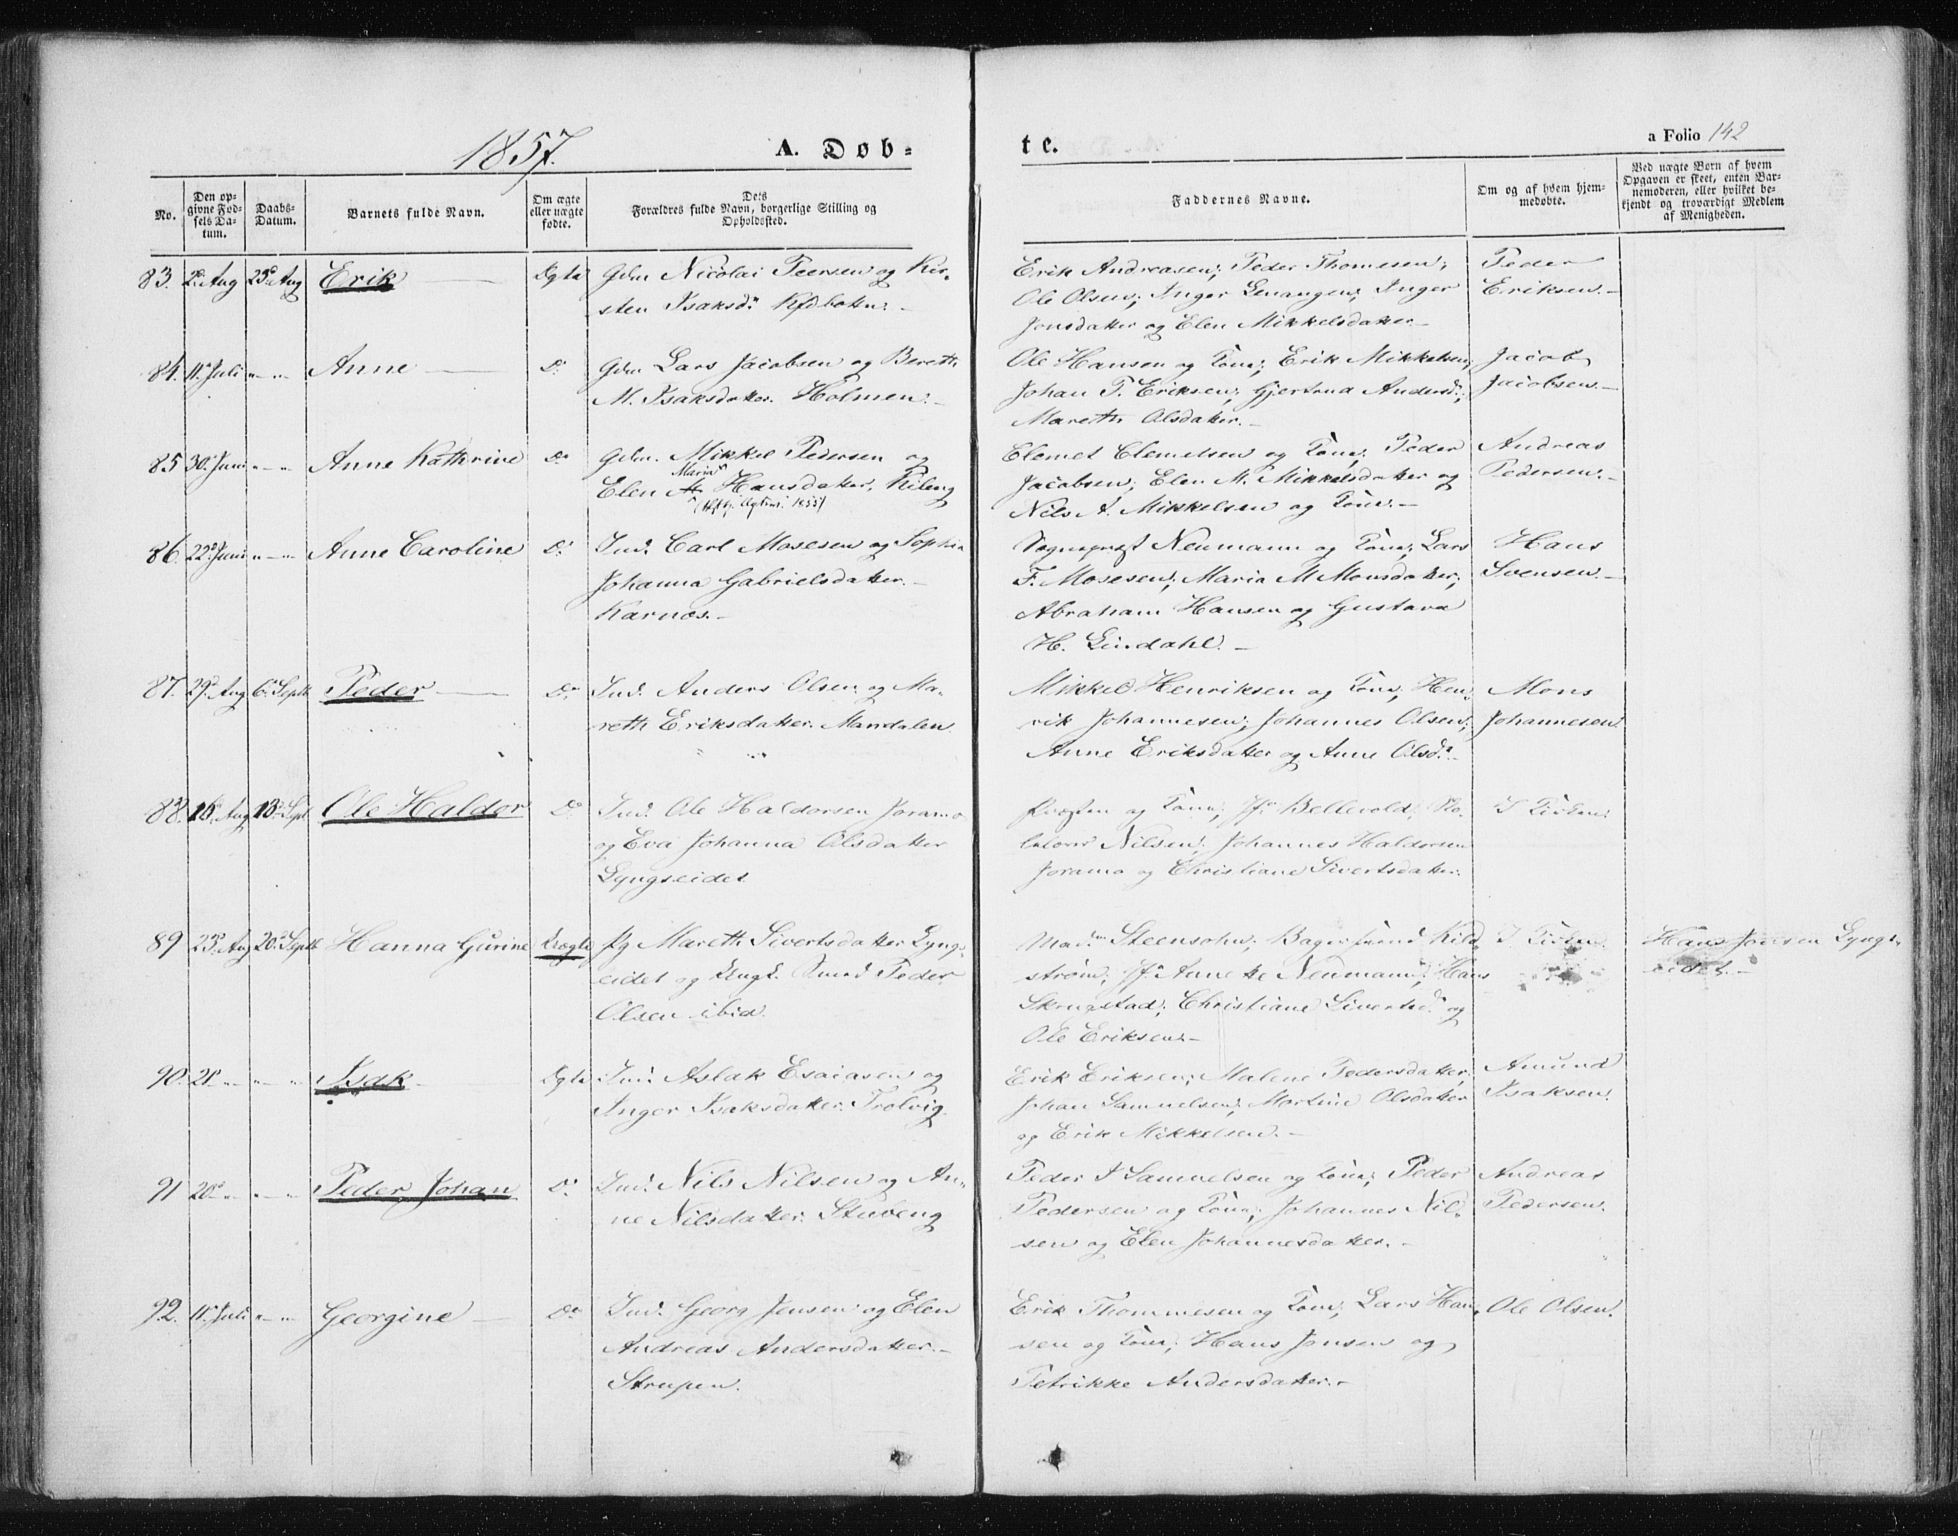 1857.
A. Døb-
te.
a Folio 142
No.
Den op-
givne Fød-
sels Da-
tum.
Daabs-
Datum.
Barnets fulde Navn.
Om ægte
eller uægte
fødte.
Dets
Forældres fulde Navn, borgerlige Stilling og
Opholdssted.
Faddernes Navne.
Om og af hvem hjem-
medøbte.
Ved uægte Børn af hvem
Opgaven er skeet, enten Bar-
nemoderen, eller hvilket be-
kjendt og troværdigt Medlem
af Menigheden.
83. 2 Aug 23 Aug Erik Ægte Gdm Nicolai Peersen og Kir-
sten Isaksd:
Erik Andreasen; Peder Thomesen;
Ole Olsen; Inger Lenangen; Inger
Jonsdatter og Elen Mikkelsdatter
Peder
Eriksen.
84. 11 Juli " " Anne Do Gdm Lars Jacobsen og Bereth
M. Isaksdatter. Holmen.
Ole Hansen og Kone; Erik Mikkelsen;
Johan P. Eriksen; Gjertrud Andersd;
Mareth Olsdatter.
Jacob
Jacobsen.
85 30 Juni " " Anne Kathrine Do Gdm. Mikkel Pedersen og
Maria
Elen M. Hansdatter, Kileng
1855
Clemet Clemetsen og Kone; Peder
Jacobsen; Elen M. Mikkelsdatter og
Nils A. Mikkelsen og Kone.
Andreas
Pedersen.
86. 22 Juni " " Anne Caroline Do Ind. Carl Mosesen og Sophia
Johanna Gabrielsdatter.
Karnæs.
Sognepræst Neumann og Kone; Lars
F. Mosesen; Maria M Monsdatter;
Abraham Hansen og Gustava
H. Lindahl.
Hans
Svensen.
87. 29 Aug 6 Septb Peder Do Ind. Anders Olsen og Ma-
reth Eriksdatter. Mandalen
Mikkel Henriksen og Kone; Hen-
rik Johannesen; Johannes Olsen;
Anne Eriksdatter og Anne Olsd.
Mons
Johannesen.
88. 16 Aug 13 Sept Ole Haldor Do Ind. Ole Haldorsen Joramo
og Eva Johanna Olsdatter
Lyngseidet
Præsten og Kone; Jfr Bellevold;
Nilsen; Johannes Haldorsen
Joramo og Christiane Sivertsdatter.
I Kirken
89 23 Aug 20 Septb Hanna Gurine Uægte Pg Mareth Sivertsdatter Lyngs-
eidet og Ungk. Smed Peder
Olsen ibid.
Mad. Steensohn; Bagersvend Kild-
strøm; Jfr Anne Neumann; Hans
Skrugstad; Christiane Sivertsd. og
Ole Eriksen.
I Kirken
Hans Jensen Lyngs-
eidet.
90. 21 " " " Isak Ægte Ind. Aslak Esaiasen og
Inger Isaksdatter. Trolvig.
Erik Eriksen; Malene Pedersdatter,
Johan Samuelsen; Martine Olsdatter
og Erik Mikkelsen.
Amund
Isaksen.
91 20 " " " Peder Johan Do Ind. Nils Nilsen og An-
ne Nilsdatter. Stuveng
Peder I Samuelsen og Kone; Peder
Pedersen og Kone; Johannes Nil-
sen og Elen Johannesdatter.
Andreas
Pedersen.
92. 11 Juli " " Georgine Do Ind. Georg Jensen og Elen
Andreas Andersdatter.
Strupen.
Erik Thommesen og Kone; Lars Han-
sen og Kone; Hans Jensen og
Petrikke Andersdatter.
Ole Olsen.